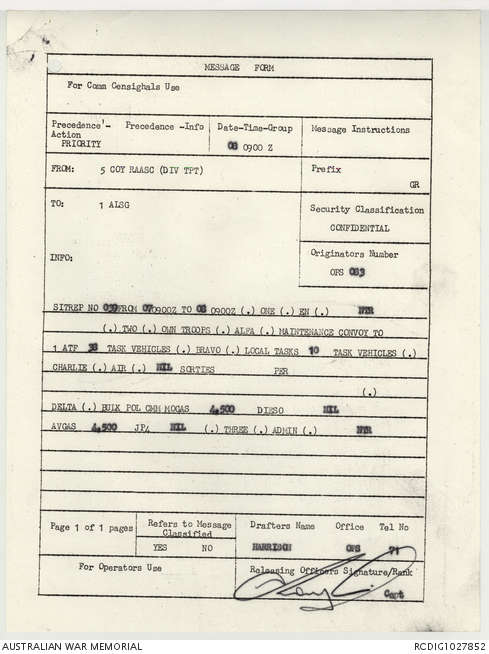 MESSAGE FORM
For Comm Censighals Use
Precedence'- Action PRIORITY
Precedence -Info
Date-Time-Group
08 0900 Z
Message Instructions
FROM: 5 COY RAASC (DIV TPT)
Prefix
GR
TO: 1 ALSG
Security Classification
CONFIDENTIAL
Originators Number
OPS 083
INFO:
SITREP NO 039 FROM 070900Z TO 08 0900Z (.) ONE (.) EN (.) NTR
(.) TWO (.) OWN TROOPS (.) ALFA (.) MAINTENANCE CONVOY TO
1 ATF 38 TASK VEHICLES (.) BRAVO (.) LOCAL TASKS 10 TASK VEHICLES (.)
CHARLIE (.) AIR (.) NIL SORTIES PER
(.)
DELTA (.) BULK POL CMM MOGAS 4,500 DIESO NIL
AVGAS 4,500 JP4 NIL (.) THREE (.) ADMIN (.) NTR
Page 1 of 1 pages
Refers to Message Classified
YES NO
Drafters Name Office Tel No
HARRISON OPS 71
For Operators Use
Releasing Officers Signature/Rank
Capt
AUSTRALIAN WAR MEMORIAL
RCDIG1027852